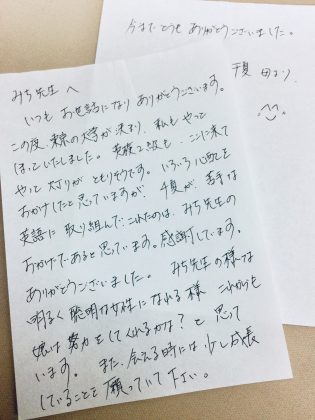 みち先生へ
いつもお世話になりありがとうございます。
この度、東京の大学が決まり、私もやっ
ほっといたしました。英検2級も、ここに来て
やっと灯りがともりそうです。いろいろ心配を
おかけしたと思っていますが、千夏が、苦手な
英語に取り組んでこれたのは、みち先生の
おかげであると思っています。感謝しています。
ありがとうございました。 みち先生の様な
明るく聡明な女性になれる様 これからも
娘は努力をしてくれるかな？と思って
います。また、会える時には少し成長
していることを願っていて下さい。
今までどうもありがとうございました。
千夏 母より